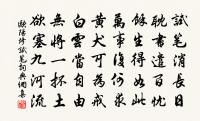 試筆消長日
耽書遣百憂
餘生得如此
萬事復何求
黃犬可為戒
白雲當自由
無將一抔土
欲塞九河流
歐陽修試筆詞典網集